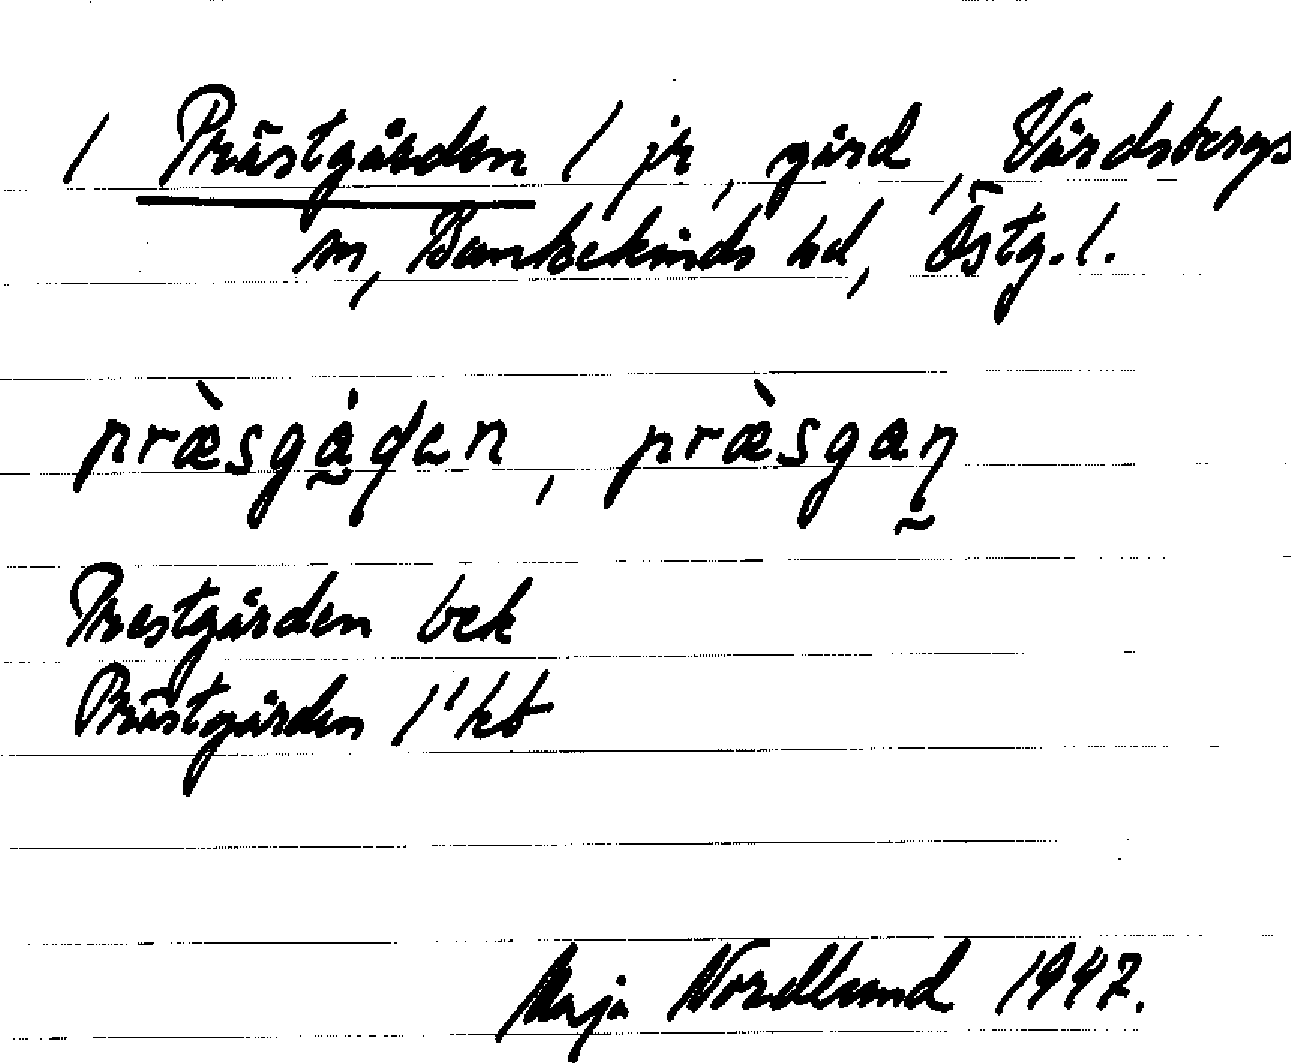 / Prästgården / jr, gård, Vårdsbergs
sn, Bankekinds hd, Östg. l.
præ̀sgȧ̰ɖen, præ̀sgaɳ̰
Prestgården bek
Prästgården 1' kb
Maja Nordlund 1947.